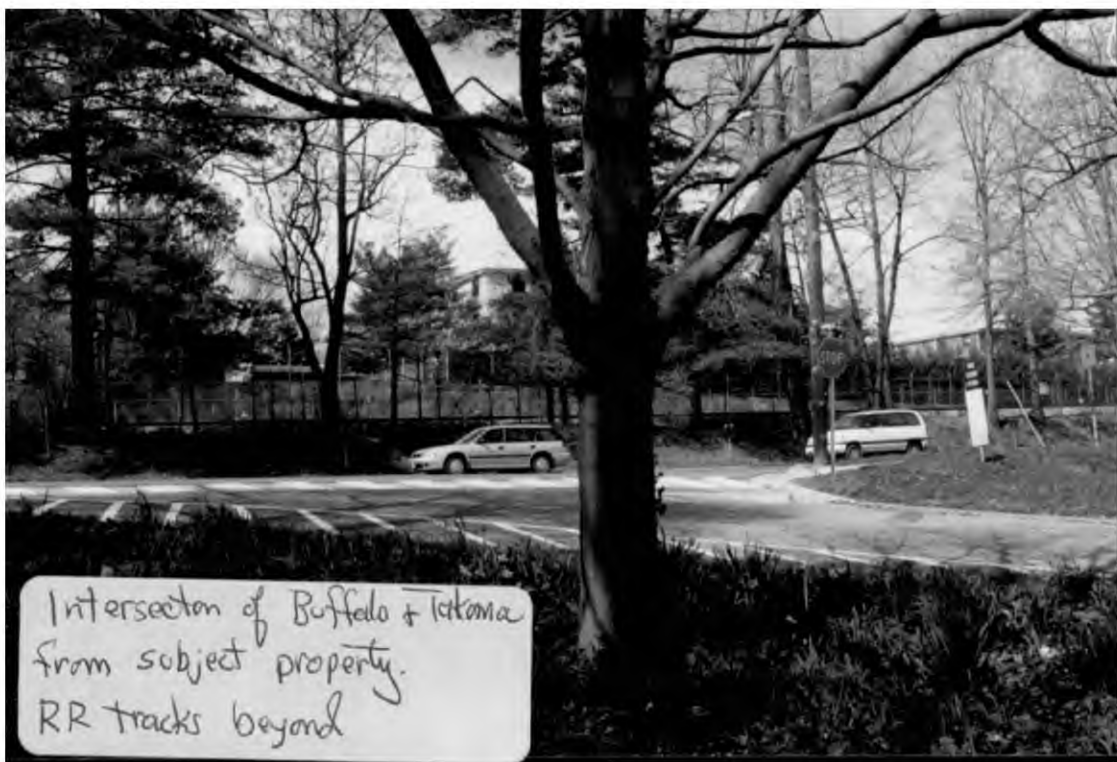 STOP
Intersecton of Buffalo + Takoma
from subject property.
RR tracks beyond